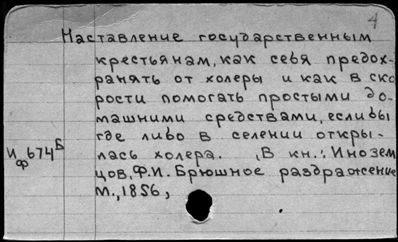 4
Наставление государственным
крестьянам, как себя предох-
ранять от холеры и как в ско
рости помогать простыми до-
машними средствами, если бы
где либо в селении откры-
лась холера. В кн.: Инозем
цов, Ф.И. Брюшное раздражение
М., 1856,
И ф 674 Б